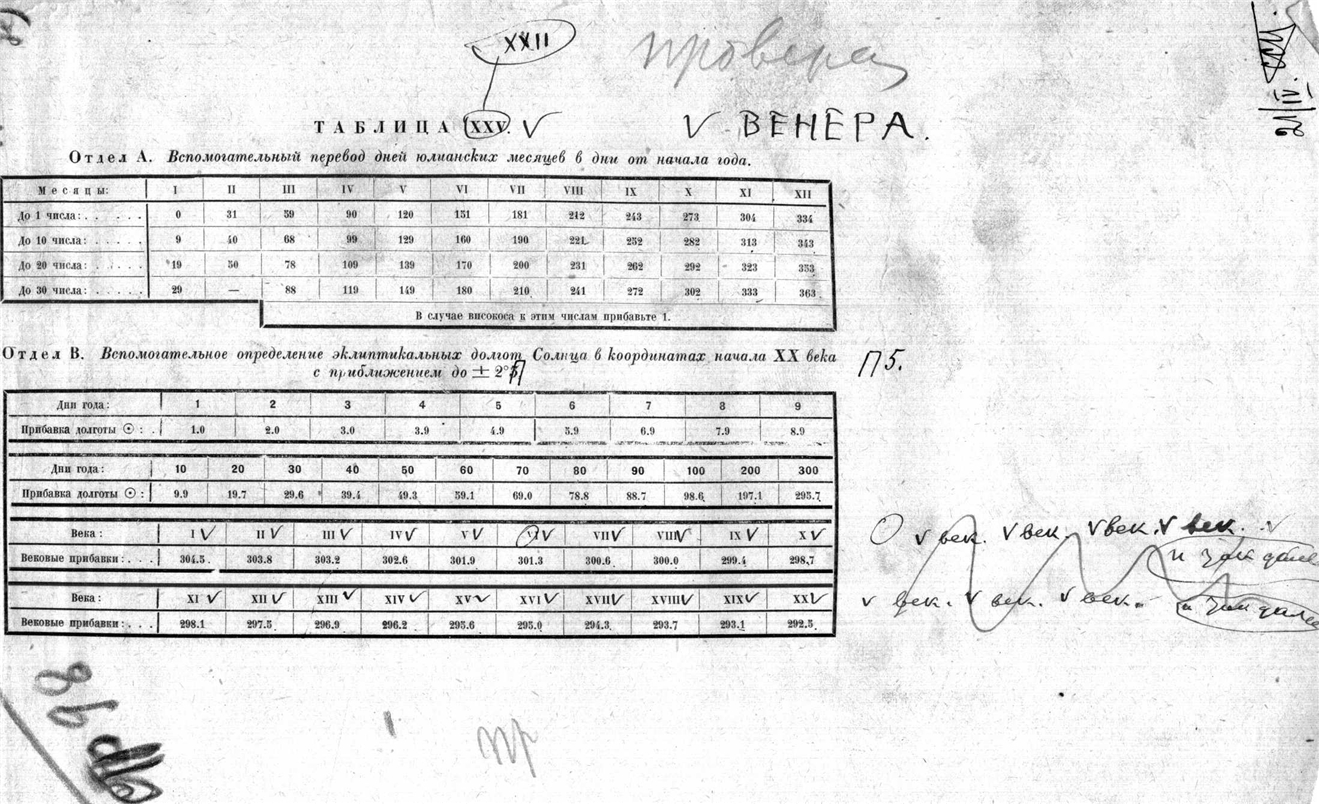 XXII
провера
ТАБЛИЦА XXV. V
V ВЕНЕРА.
21/IV.
Отдел А. Вспомогательный перевод дней юлианских месяцев в дни от начала года.
Месяцы: I II III IV V VI VII VIII IX X XI XII
До 1 числа: . . . . . 0 31 59 90 120 151 181 212 243 273 304 334
До 10 числа: . . . . . 9 40 68 99 129 160 190 221 252 282 313 343
До 20 числа: . . . . . 19 50 78 109 139 170 200 231 262 292 323 353
До 30 числа: . . . . . 29 — 88 119 149 180 210 241 272 302 333 363
В случае високоса к этим числам прибавьте 1.
Отдел В. Вспомогательное определение эклиптикальных долгот Солнца в координатах начала XX века
с приближением до ± 2°
П5.
Дни года: 1 2 3 4 5 6 7 8 9
Прибавка долготы ☉: . . 1.0 2.0 3.0 3.9 4.9 5.9 6.9 7.9 8.9
Дни года: 10 20 30 40 50 60 70 80 90 100 200 300
Прибавка долготы ☉: 9.9 19.7 29.6 39.4 49.3 59.1 69.0 78.8 88.7 98.6 197.1 295.7
Века: I V II V III V IV V V V VI V VII V VIII V IX V X V
Вековые прибавки: . . . 304.5 303.8 303.2 302.6 301.9 301.3 300.6 300.0 299.4 298,7
V век. V век. V век. V век. V
и
Века: XI V XII V XIII V XIV V XV V XVI V XVII V XVIII V XIX V XX V
Вековые прибавки: . . . 298.1 297.5 296.9 296.2 295.6 295.0 294.3 293.7 293.1 292.5
V век. V век. V век.
пр